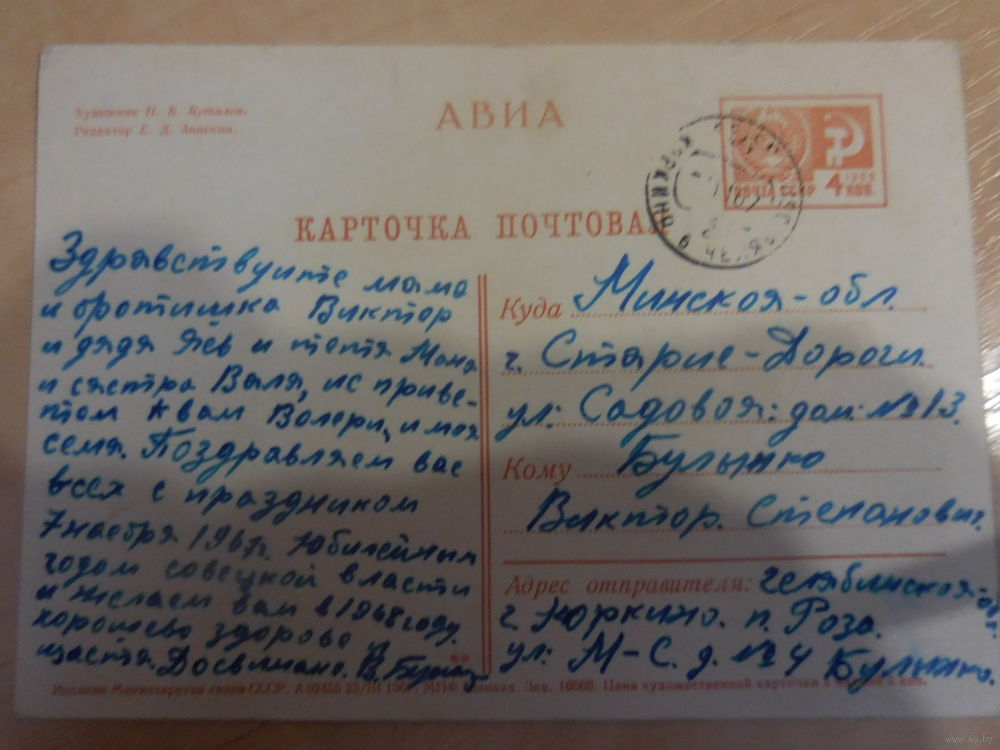 Художник Н. К. Кутилов.
Редактор Е. Д. Анискин.
АВИА
ПОЧТА СССР 4 КОП. 1966
КАРТОЧКА ПОЧТОВАЯ
Здравствуите мама
и бротишка Виктор
и дядя Лёв и тетя Маня
и сястра Валя, ис приве-
том к вам Волери, и моя
семя. Поздравляем вас
всех с праздником
7 ноебря 1967г. Юбилейным
годом совецкой власти
и желаем вам в 1968 году.
хорошево здоровя
щастя. Досвидане. В.
Куда Минская-обл
г. Старые-Дороги.
ул: Садовоя: дом: №13.
Кому Булынко
Виктор. Степанович.
Адрес отправителя: челябинская-обл.
г. Коркино. п. Роза.
ул: М-С. д. №4 Булынко.
Издание Министерства связи СССР. А 25/III МПФ Зак. 10666. Цена художественной карточки с маркой коп.
www.ay.by